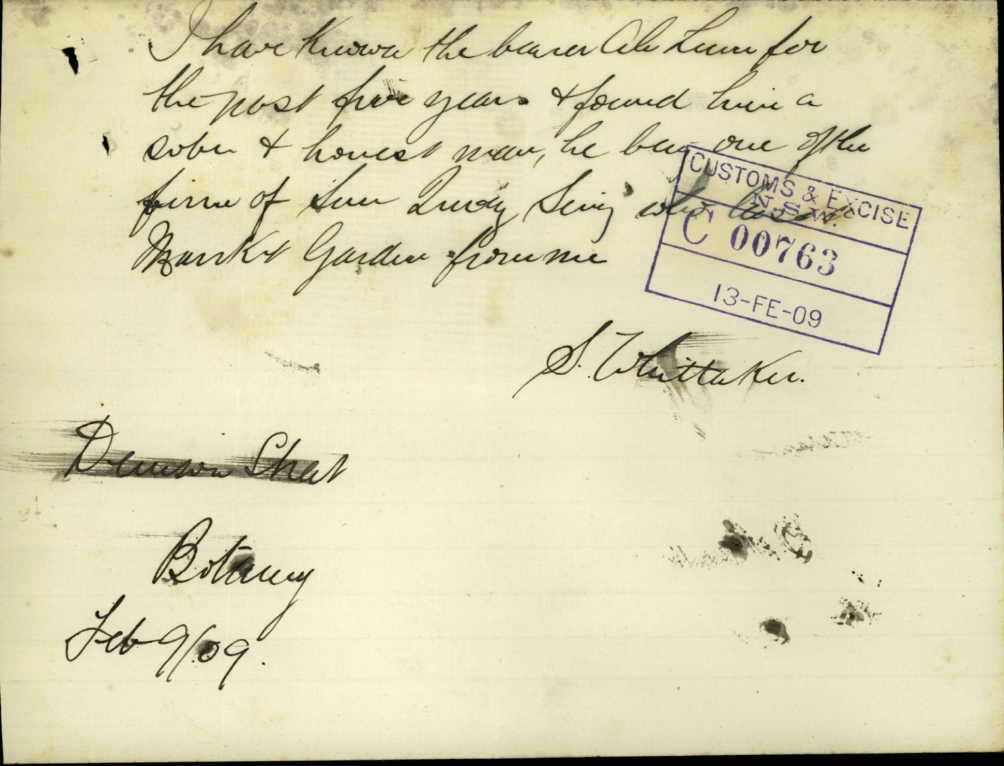 I have known the bearer Ah Lum for
the past five years & found him a
sober & honest man, he being one of the
firm of Sun Sing who
Market Garden from me
CUSTOMS & EXCISE
N.S.W.
C 00763
13-FE-09
S. Whittaker.
Denison Street
Botany
Feb 9/09.